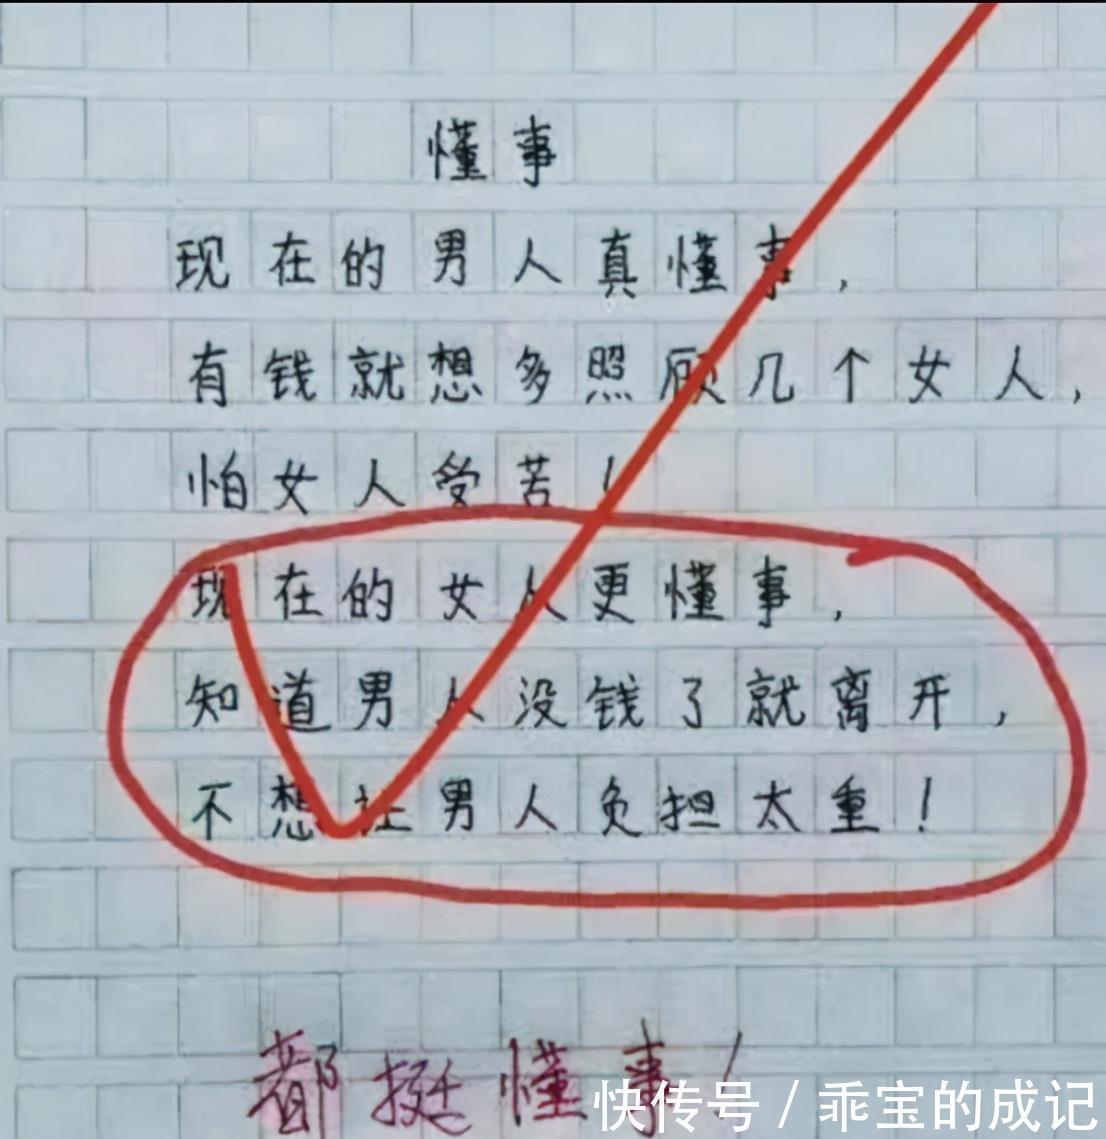 懂事
现在的男人真懂事，
有钱就想多照顾几个女人，
怕女人受苦！
现在的女人更懂事，
知道男人没钱了就离开，
不想让男人负担太重！
都挺懂事！
快传号 / 乖宝的成记